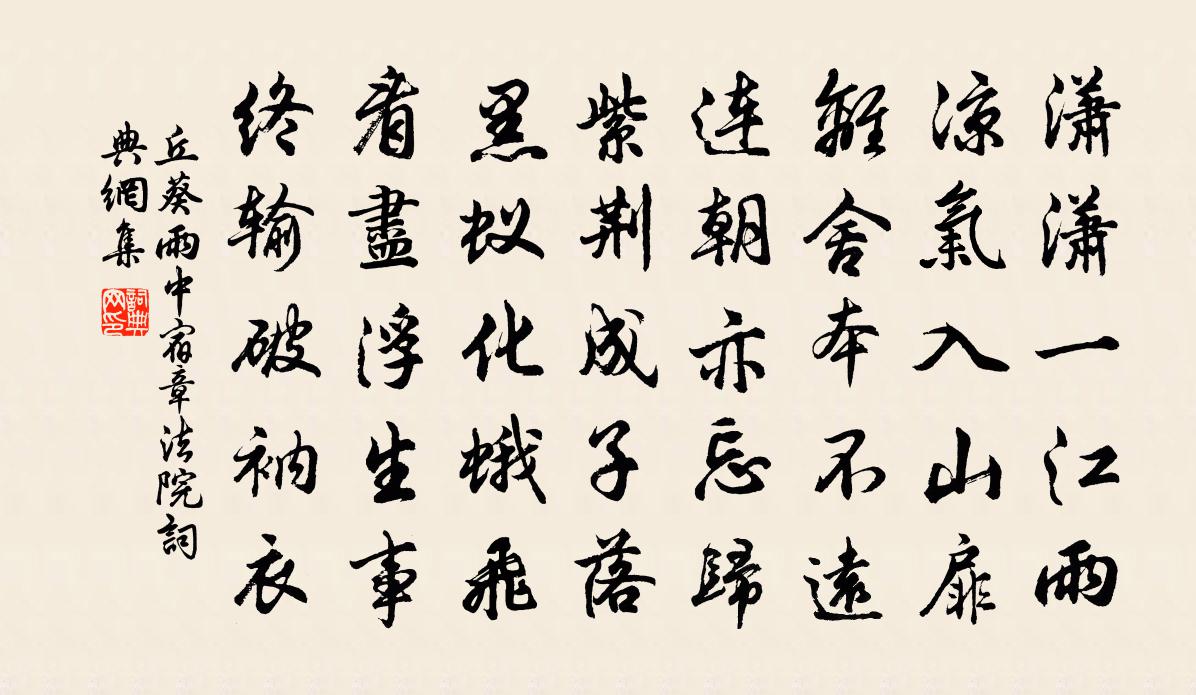 瀟瀟一江雨
涼氣入山扉
離舍本不遠
連朝亦忘歸
紫荆成子落
黑蚁化蛾飛
看盡浮生事
终輸破衲衣
丘葵雨中宿章法院詞
典網集
詞典
网印